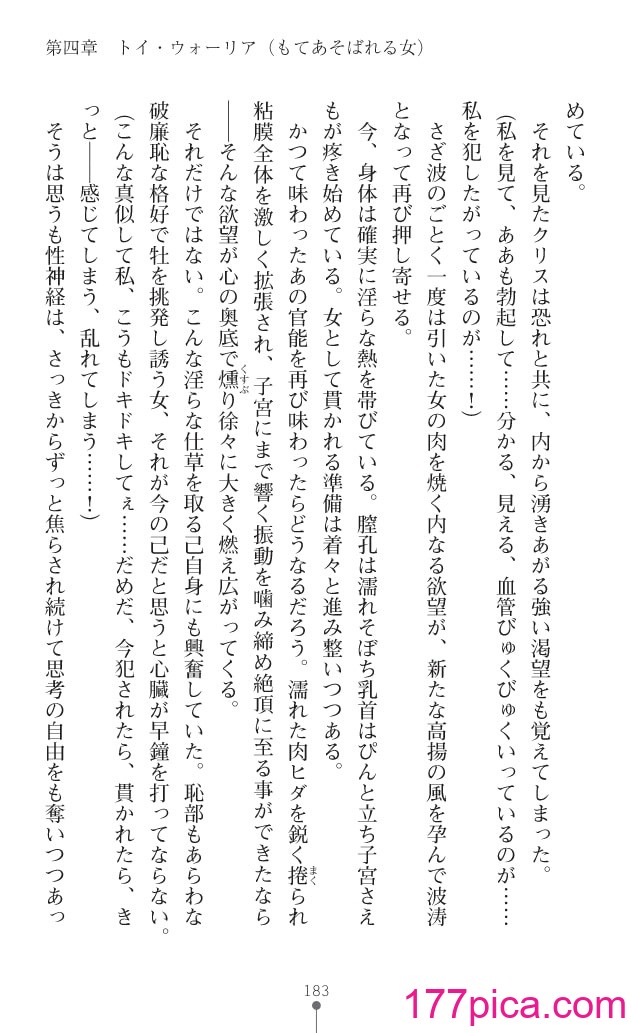 第四章　トイ・ウォーリア（もてあそばれる女）
めている。
　それを見たクリスは恐れと共に、内から湧きあがる強い渇望をも覚えてしまった。
（私を見て、ああも勃起して……分かる、見える、血管びゅくびゅくいっているのが……
私を犯したがっているのが……！）
　さざ波のごとく一度は引いた女の肉を焼く内なる欲望が、新たな高揚の風を孕んで波涛
となって再び押し寄せる。
　今、身体は確実に淫らな熱を帯びている。膣孔は濡れそぼち乳首はぴんと立ち子宮さえ
もが疼き始めている。女として貫かれる準備は着々と進み整いつつある。
　かつて味わったあの官能を再び味わったらどうなるだろう。濡れた肉ヒダを鋭く捲られ
粘膜全体を激しく拡張され、子宮にまで響く振動を噛み締め絶頂に至る事ができたなら
――そんな欲望が心の奥底で燻り徐々に大きく燃え広がってくる。
　それだけではない。こんな淫らな仕草を取る己自身にも興奮していた。恥部もあらわな
破廉恥な格好で牡を挑発し誘う女、それが今の己だと思うと心臓が早鐘を打ってならない。
（こんな真似して私、こうもドキドキしてぇ……だめだ、今犯されたら、貫かれたら、き
っと――感じてしまう、乱れてしまう……！）
　そうは思うも性神経は、さっきからずっと焦らされ続けて思考の自由をも奪いつつあっ
まく
くすぶ
183
177pica.com